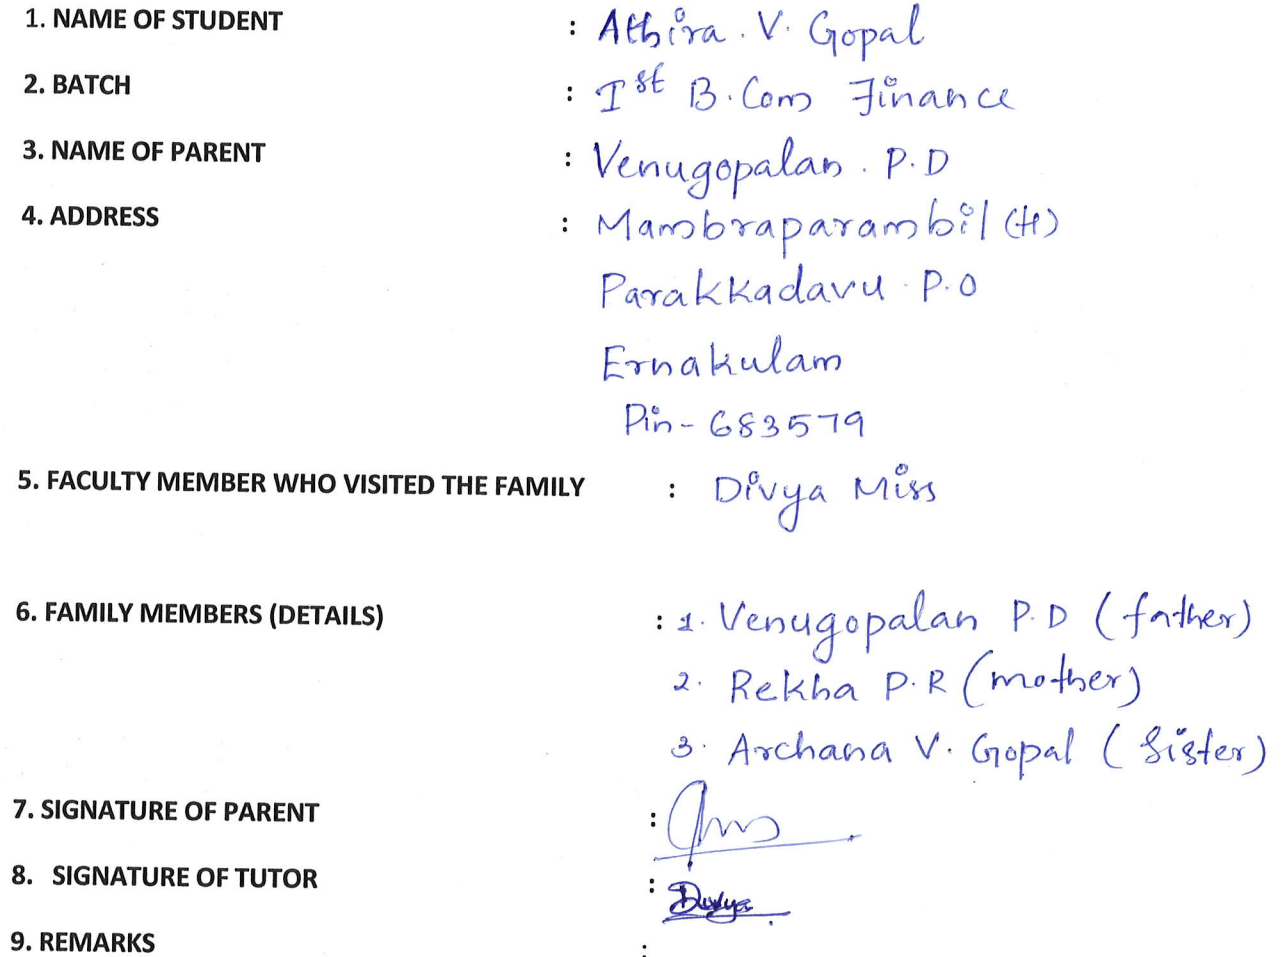 1. NAME OF STUDENT : Athira . V. Gopal
2. BATCH : Ist B.Com Finance
3. NAME OF PARENT : Venugopalan . P.D
4. ADDRESS : Mambraparambil (H)
Parakkadavu . P.O
Ernakulam
Pin - 683579
5. FACULTY MEMBER WHO VISITED THE FAMILY : Divya Miss
6. FAMILY MEMBERS (DETAILS) : 1. Venugopalan P.D (father)
2. Rekha P.R (mother)
3. Archana V. Gopal (Sister)
7. SIGNATURE OF PARENT :
8. SIGNATURE OF TUTOR : Divya
9. REMARKS :